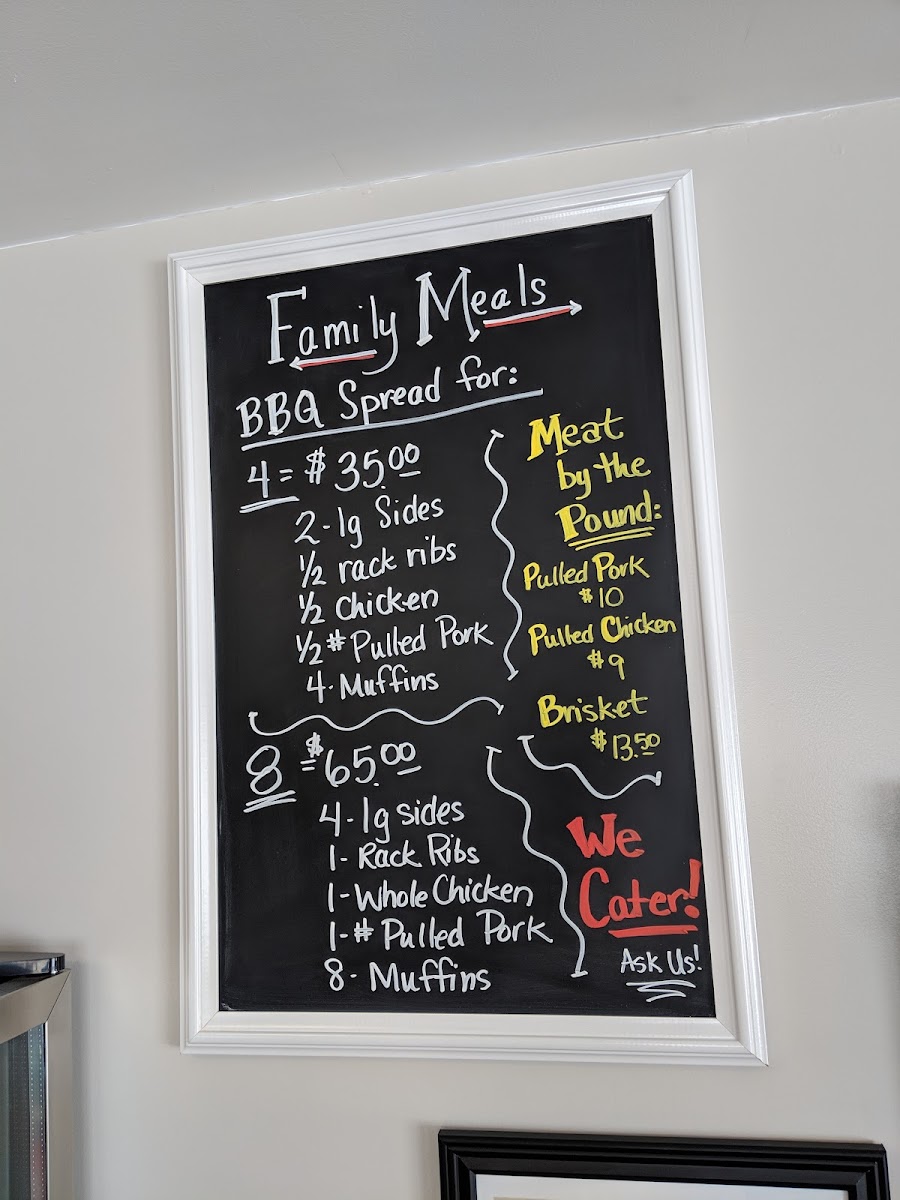 Family Meals
BBQ Spread for:
4 = $35.00
2-lg Sides
1/2 rack ribs
1/2 Chicken
1/2 # Pulled Pork
4-Muffins
8 = $65.00
4-lg sides
1-Rack Ribs
1-Whole Chicken
1-# Pulled Pork
8-Muffins
Meat
by the
Pound:
Pulled Pork
$10
Pulled Chicken
$9
Brisket
$13.50
We
Cater!
Ask Us!